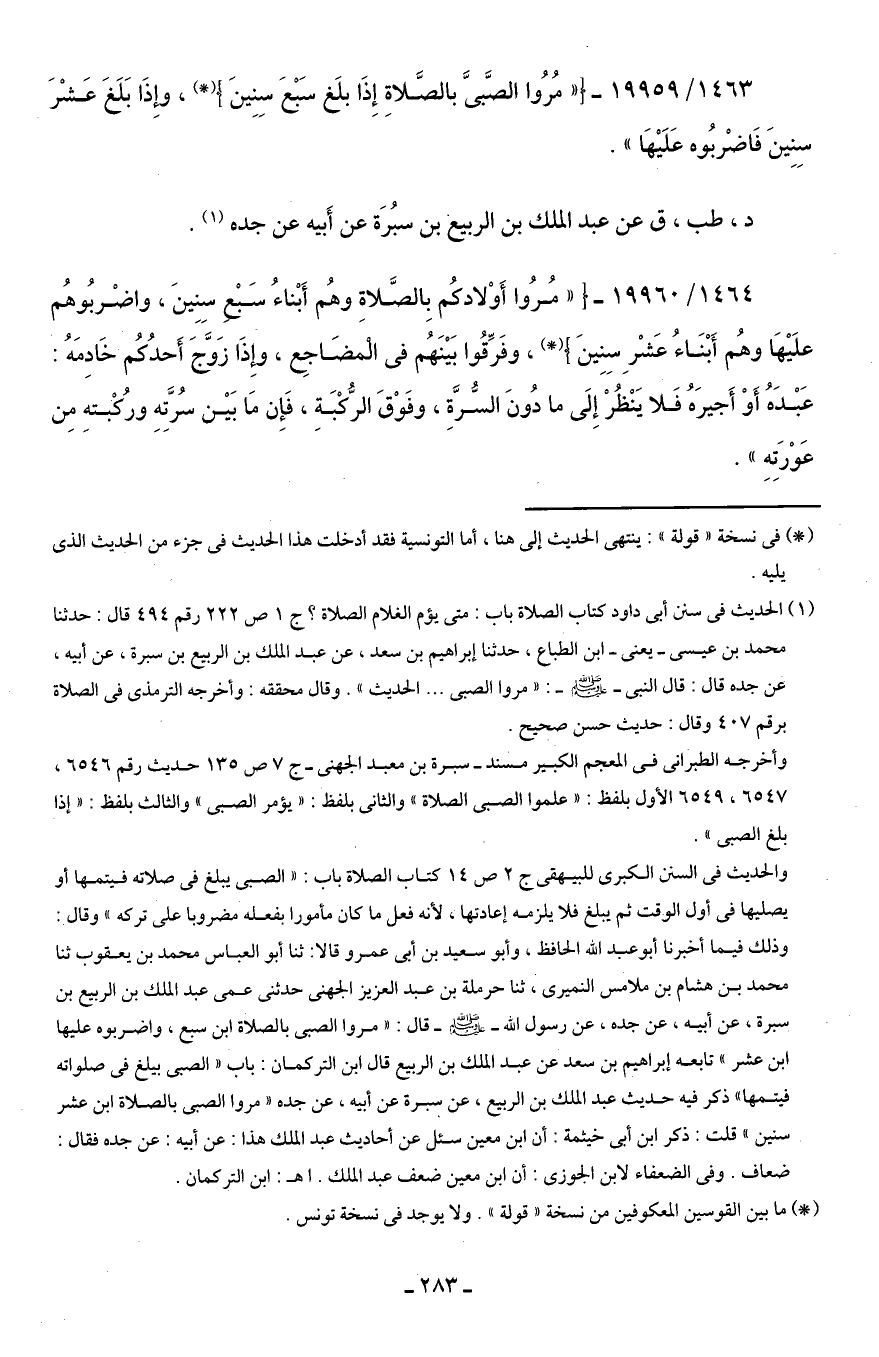 ١٤٦٣/ ١٩٩٥٩ ـ {« مُرُوا الصَّبِىَّ بالصَّلاةِ إذَا بلَغ سَبْعَ سِنِينَ }(*) ، وإِذَا بَلَغَ عَشْرَ
سِنِينَ فَاضْربُوه عَلَيْهَا » .
د ، طب ، ق عن عبد الملك بن الربيع بن سبُرَة عن أَبيه عن جده (١) .
١٤٦٤/ ١٩٩٦٠ ـ { « مُرُوا أَوْلادكُم بِالصَّلاة وهُم أَبْناءُ سَبْعِ سِنينَ ، واضْرِبُوهُم
علَيْهَا وهُم أَبْنَاءُ عَشْرِ سِنِينَ }(*) ، وفَرِّقُوا بيْنَهُم فى الْمضَاجِعِ ، وإِذَا زَوَّجَ أَحدُكُم خَادِمَهُ :
عَبْدَهُ أَوْ أَجيرَهُ فَلا يَنْظُرْ إِلَى ما دُونَ السُّرَّة ، وفَوْقَ الرُّكْبَةِ ، فَإِن مَا بَيْن سُرَّتِهِ ورُكْبْتهِ مِن
عوْرَتِهِ » .
(*) فى نسخة « قولة » : ينتهى الحديث إلى هنا ، أما التونسية فقد أدخلت هذا الحديث فى جزء من الحديث الذى
يليه .
(١) الحديث فى سنن أبى داود كتاب الصلاة باب : متى يؤم الغلام الصلاة ؟ ج ١ ص ٢٢٢ رقم ٤٩٤ قال : حدثنا
محمد بن عيسى ـ يعنى ـ ابن الطباع ، حدثنا إبراهيم بن سعد ، عن عبد الملك بن الربيع بن سبرة ، عن أبيه ،
عن جده قال : قال النبى ـ ﷺ ـ : « مروا الصبى ... الحديث » . وقال محققه : وأخرجه الترمذى فى الصلاة
برقم ٤٠٧ وقال : حديث حسن صحيح .
وأخرجه الطبرانى فى المعجم الكبير مسند ـ سبرة بن معبد الجهنى ـ ج ٧ ص ١٣٥ حديث رقم ٦٥٤٦ ،
٦٥٤٧ ، ٦٥٤٩ الأول بلفظ : « علموا الصبى الصلاة » والثانى بلفظ : « يؤمر الصبى » والثالث بلفظ : « إذا
بلغ الصبى » .
والحديث فى السنن الكبرى للبيهقى ج ٢ ص ١٤ كتاب الصلاة باب : « الصبى يبلغ فى صلاته فيتمها أو
يصليها فى أول الوقت ثم يبلغ فلا يلزمه إعادتها ، لأنه فعل ما كان مأمورا بفعله مضروبا على تركه » وقال :
وذلك فيما أخبرنا أبوعبد الله الحافظ ، وأبو سعيد بن أبى عمرو قالا: ثنا أبو العباس محمد بن يعقوب ثنا
محمد بن هشام بن ملامس النميرى ، ثنا حرملة بن عبد العزيز الجهنى حدثنى عمى عبد الملك بن الربيع بن
سبرة ، عن أبيه ، عن جده ، عن رسول الله ـ ﷺ ـ قال : « مروا الصبى بالصلاة ابن سبع ، واضربوه عليها
ابن عشر » تابعه إبراهيم بن سعد عن عبد الملك بن الربيع قال ابن التركمان : باب « الصبى بيلغ فى صلواته
فيتمها» ذكر فيه حديث عبد الملك بن الربيع ، عن سبرة عن أبيه ، عن جده « مروا الصبى بالصلاة ابن عشر
سنين » قلت : ذكر ابن أبى خيثمة : أن ابن معين سئل عن أحاديث عبد الملك هذا : عن أبيه : عن جده فقال :
ضعاف . وفى الضعفاء لابن الجوزى : أن ابن معين ضعف عبد الملك . ا هـ : ابن التركمان .
(*) ما بين القوسين المعكوفين من نسخة « قولة » . ولا يوجد فى نسخة تونس .
ـ ٢٨٣ ـ